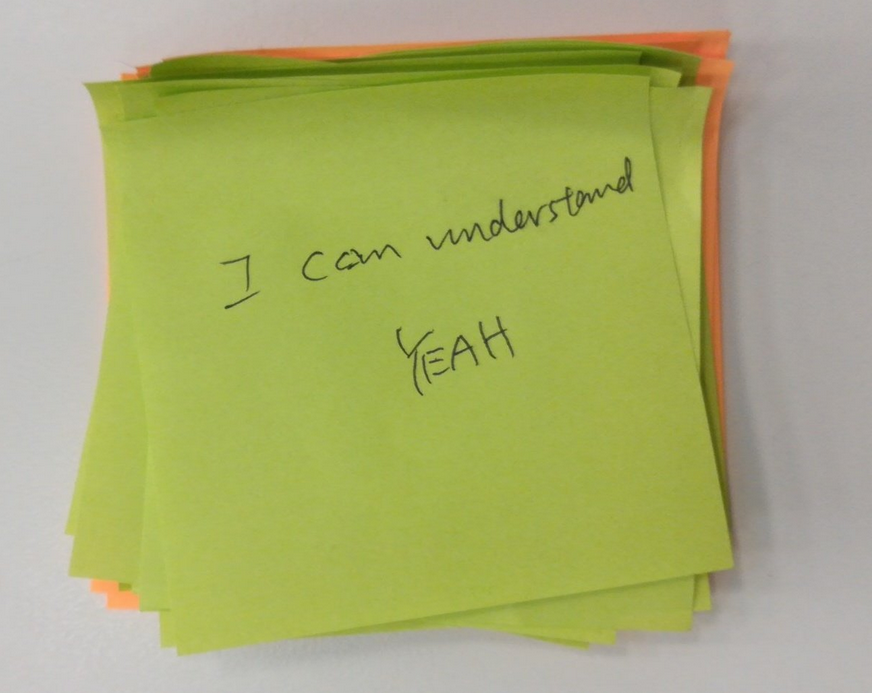 I can understand
YEAH